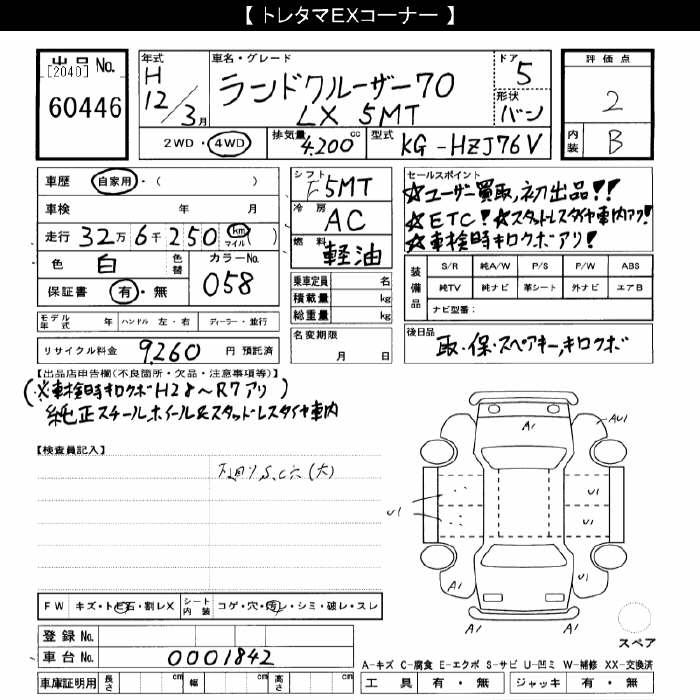 【 トレタマEXコーナー 】
出品 No.
[2040]
60446
年式
H
12/3月
車名・グレード
ランドクルーザー70
LX 5MT
ドア
5
形状
バン
評価点
2
内装
B
2WD・4WD
排気量 4,200 cc
型式 KG-HZJ76V
車歴 自家用・( )
車検 年 月
走行 32万6千250 km マイル ( )
色 白 色替
カラーNo. 058
保証書 有・無
シフト F5MT
冷房 AC
燃料 軽油
乗車定員 名
積載量 kg
総重量 kg
セールスポイント
☆ユーザー買取,初出品!!
☆ETC! ☆スタッドレスタイヤ車内アリ!
☆車検時キロクボアリ!
装備品
S/R 純A/W P/S P/W ABS
純TV 純ナビ 革シート 外ナビ エアB
ナビ型番:
モデル年式 年 ハンドル 左・右 ディーラー・並行
リサイクル料金 9,260 円 預託済
名変期限
月 日
後日品
取・保・スペアキー,キロクボ
【出品店申告欄(不良箇所・欠品・注意事項等)】
(※車検時キロクボH28〜R7アリ)
純正スチールホイール&スタッドレスタイヤ車内
【検査員記入】
下廻りS,C穴(大)
A1
AU1
U1
U1
U1
A1
A1
スペア
FW キズ・トビ石・割レX
シート内装 コゲ・穴・汚レ・シミ・破レ・スレ
登録 No.
車台 No. 0001842
車庫証明用 長さ cm 幅 cm 高さ cm
A-キズ C-腐食 E-エクボ S-サビ U-凹ミ W-補修 XX-交換済
工具 有・無 ジャッキ 有・無